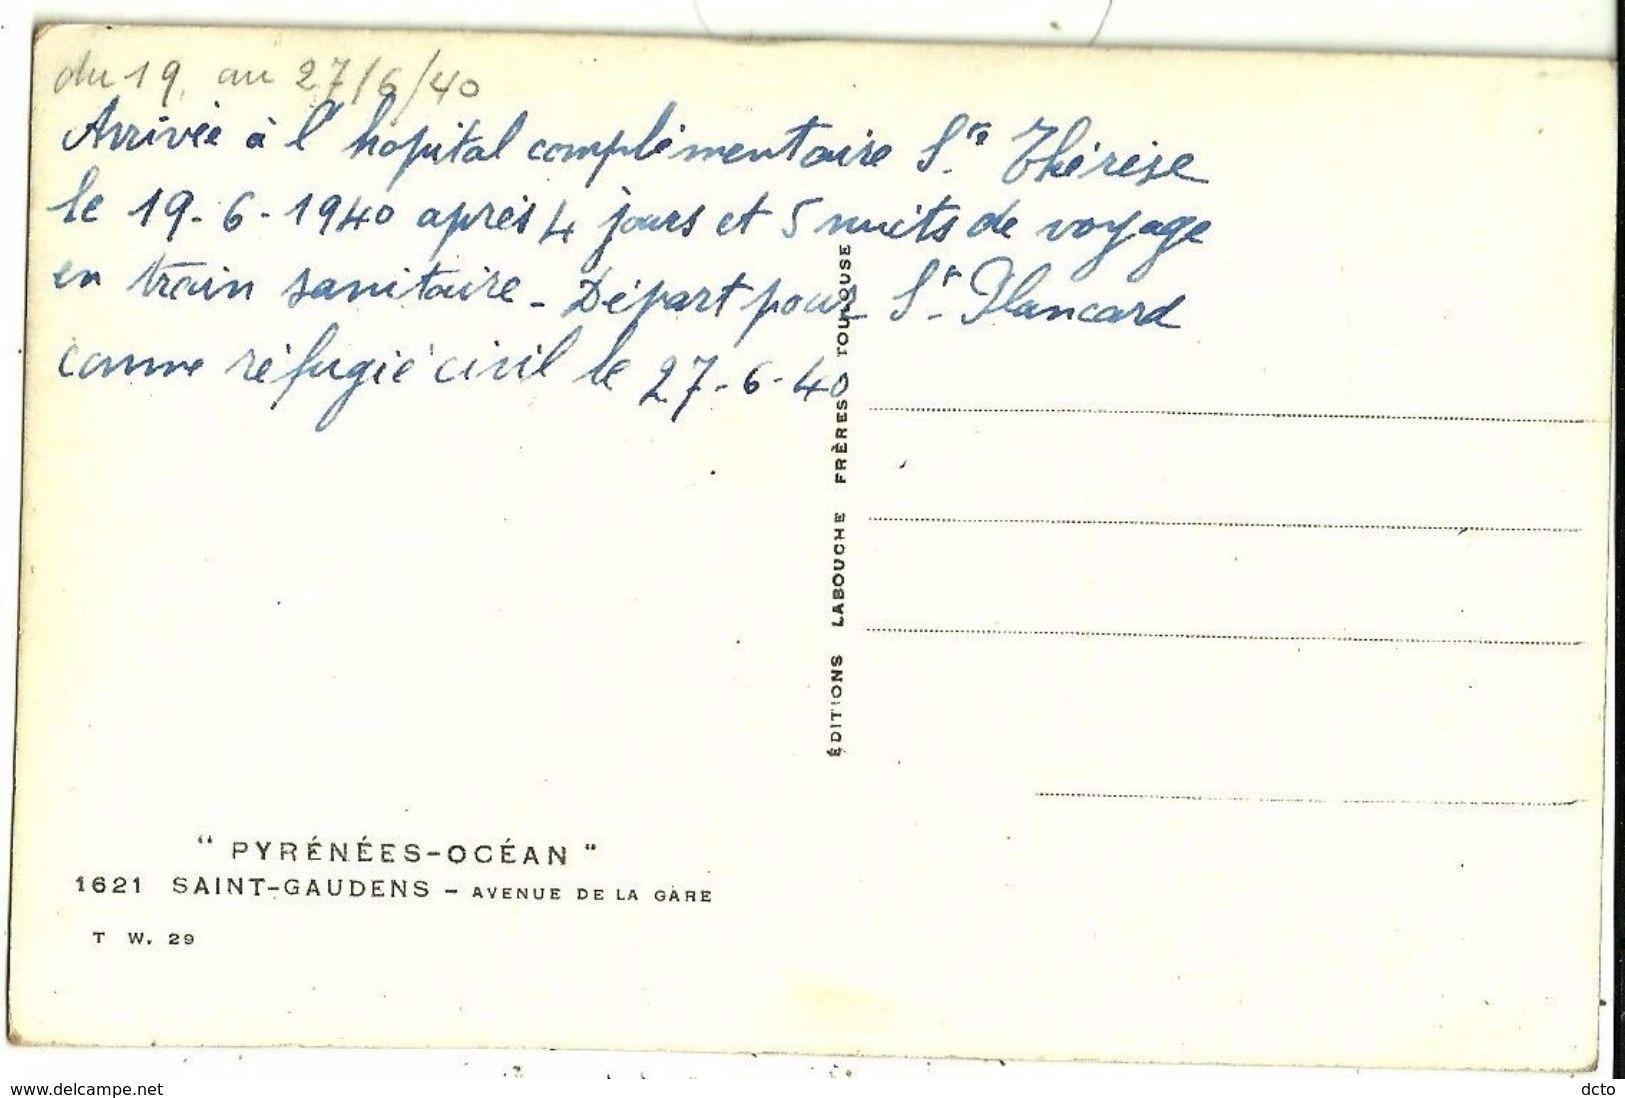 du 19 au 27/6/40
Arrivée à l'hopital complémentaire Ste Thérèse
le 19-6-1940 après 4 jours et 5 nuits de voyage
en train sanitaire - Départ pour St Plancard
comme réfugié civil le 27-6-40
ÉDITIONS LABOUCHE FRÈRES TOULOUSE
"PYRÉNÉES-OCÉAN"
1621 SAINT-GAUDENS - AVENUE DE LA GARE
T W. 29
www.delcampe.net
dcto